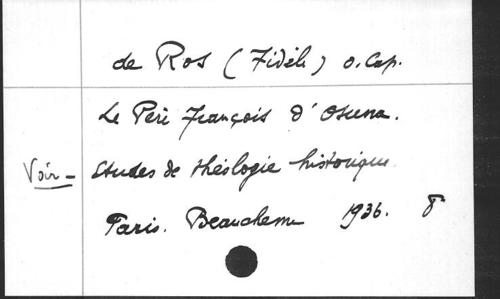 de Ros (Fidèle) O. Cap.
Le Père François d'Osuna.
Voir - Etudes de théologie historique.
Paris. Beauchesne 1936. 8